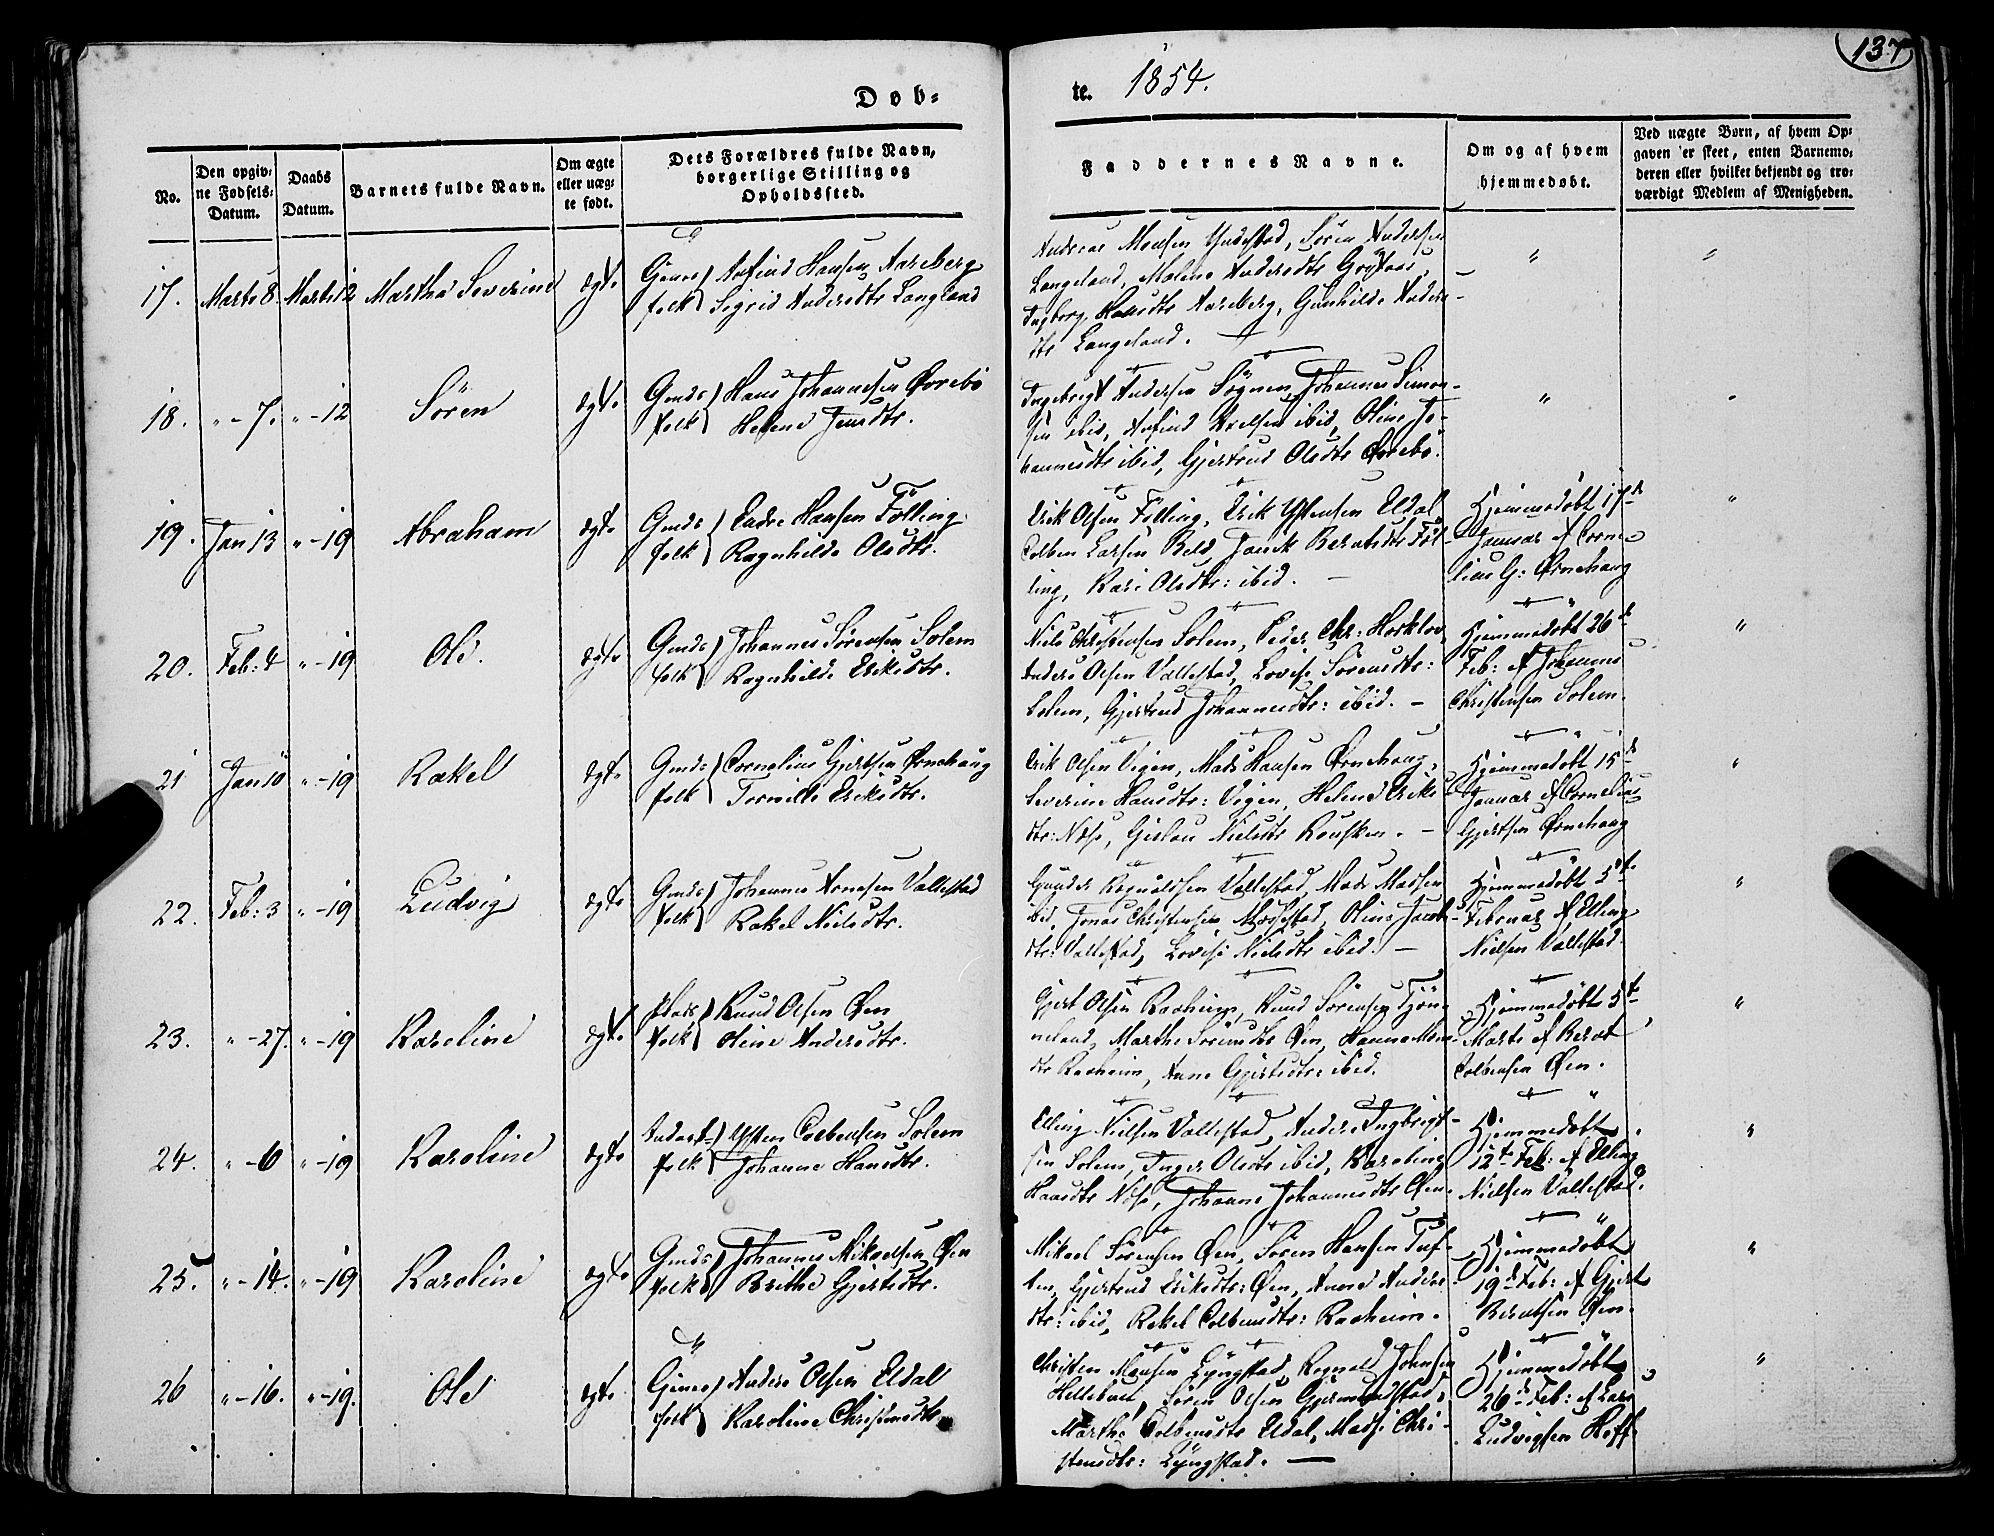 137
Døb=
te. 1854.
No.
Den opgiv=
ne Fødsels=
Datum.
Daabs
Datum.
Barnets fulde Navn.
Om ægte
eller uæg=
te født.
Dets Forældres fulde Navn,
borgerlige Stilling og
Opholdssted.
Faddernes Navne.
Om og af hvem
hjemmedøbt.
Ved uægte Børn, af hvem Op=
gaven er skeet, enten Barnemo=
deren eller hvilket bekjendt og tro=
værdigt Medlem af Menigheden.
17. Marts 8. Marts 12 Martha Severine ægte
Arfind Hansen Aareberg
folk Sigrid Andersdtr Langeland
Andreas Monsen Yndestad, Søren Andersen
Langeland, Malene Andersdtr
Ingborg Hansdtr Aareberg, Gunhilde Anders-
dtr Langeland.
18. " - 7. " - 12 Søren ægte
Gmds Hans Johannesen Øvrebø
folk Helene Jensdtr.
Ingebrigt Andersen Sognen, Johannes Simon-
sen ibid, Arfind Axelsen ibid, Oline Jo-
hannesdtr ibid, Gjertrud Olsdtr Øvrebø.
19. Jan 13 " - 19 Abraham ægte
Gmds Endre Hansen Følling
folk Ragnhilde Olsdtr.
Erik Olsen Følling, Erik Ystensen Eldal
Colben Larsen Beld, Berntsdtr Føl-
ling, Kari Olsdtr: ibid. -
Hjemmedøbt 17de
Januar af Corne-
lius G: Ørnehaug
20. Feb: 4 " - 19 Ole. ægte
Gmds Johannes Sørensen Solem
folk Ragnhilde Eriksdtr.
Niels Christensen Solem, Peder Chr: Horklov
Anders Olsen Vallestad, Lovise Sørensdtr:
Solem, Gjertrud Johannesdtr: ibid. -
Hjemmedøbt 26de
Feb: af Johannes
Christensen Solem.
21 Jan 10 " - 19 Rakel ægte
Gmds Cornelius Gjertsen Ørnehaug
folk Tornille Eriksdtr.
Erik Olsen Vigen, Mads Hansen Ørnehaug,
Severine Hansdtr: Vigen, Helene Eriks
dtr: Nese, Gislau Nielsdtr -
Hjemmedøbt 15de
Januar af Cornelius
Gjertsen Ørnehaug
22. Feb: 3 " - 19 Ludvig ægte
Gmds Johannes Arnesen Vallestad
folk Rakel Nielsdtr.
Gunder Ragnaldsen Vallestad, Mads Madsen
ibid, Jonas Christensen Oline Jacobs-
dtr: Vallestad, Lovise Nielsdtr ibid. -
Hjemmedøbt 5te
Februar af Elling
Nielsen Vallestad.
23. " - 27. " - 19 Karoline ægte
Plads Knud Olsen Øen
folk Oline Andersdtr.
Gjert Olsen Raaheim, Knud Sørensen
Marthe Sørensdtr Øen, Hanne Mons-
dtr Raaheim, Anne Gjertsdtr: ibid.
Hjemmedøbt 5te
Marts af Bernt
Colbensen Øen.
24. " - 6 " - 19 Karoline ægte
Ysten Colbensen Solem
folk Johanne Hansdtr.
Elling Nielsen Vallestad, Anders Ingbrigt-
sen Solem, Inger Olsdtr ibid, Karoline
Hansdtr Nese, Johanne Johannesdtr Øen.
Hjemmedøbt
12te Feb: af Elling
Nielsen Vallestad.
25. " - 14. " - 19 Karoline ægte
Gmds Johannes Mikaelsen Øen
folk Brithe Gjertsdtr.
Mikael Sørensen Øen, Søren Hansen Tuf-
ten, Gjertrud Eriksdtr: Øen, Anne Anders-
dtr: ibid, Rakel Colbensdtr: Raaheim.
Hjemmedøbt
19de Feb: af Gjert
Berntsen Øen.
26 " - 16. " - 19. Ole ægte
Anders Olsen Eldal
folk Karoline Christensdtr.
Christen Monsen Lyngstad, Ragnald Johnsen
Søren Olsen
Marthe Colbensdtr Eldal, Madsi Chri-
stensdtr: Lyngstad. -
Hjemmedøbt
26de Feb: af Lars
Ludvigsen Hoff.